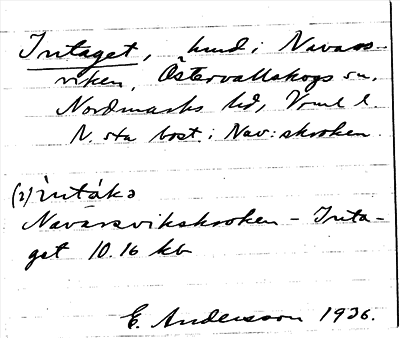 Intaget, hmd i Navars-
viken, Östervallskogs sn,
Nordmarks hd, Vrml l
N. sta bost. i Nav:skroken.
(2) ìntákə
Navarsvikskroken - Inta-
get 10.16 kb
E. Andersson 1936.